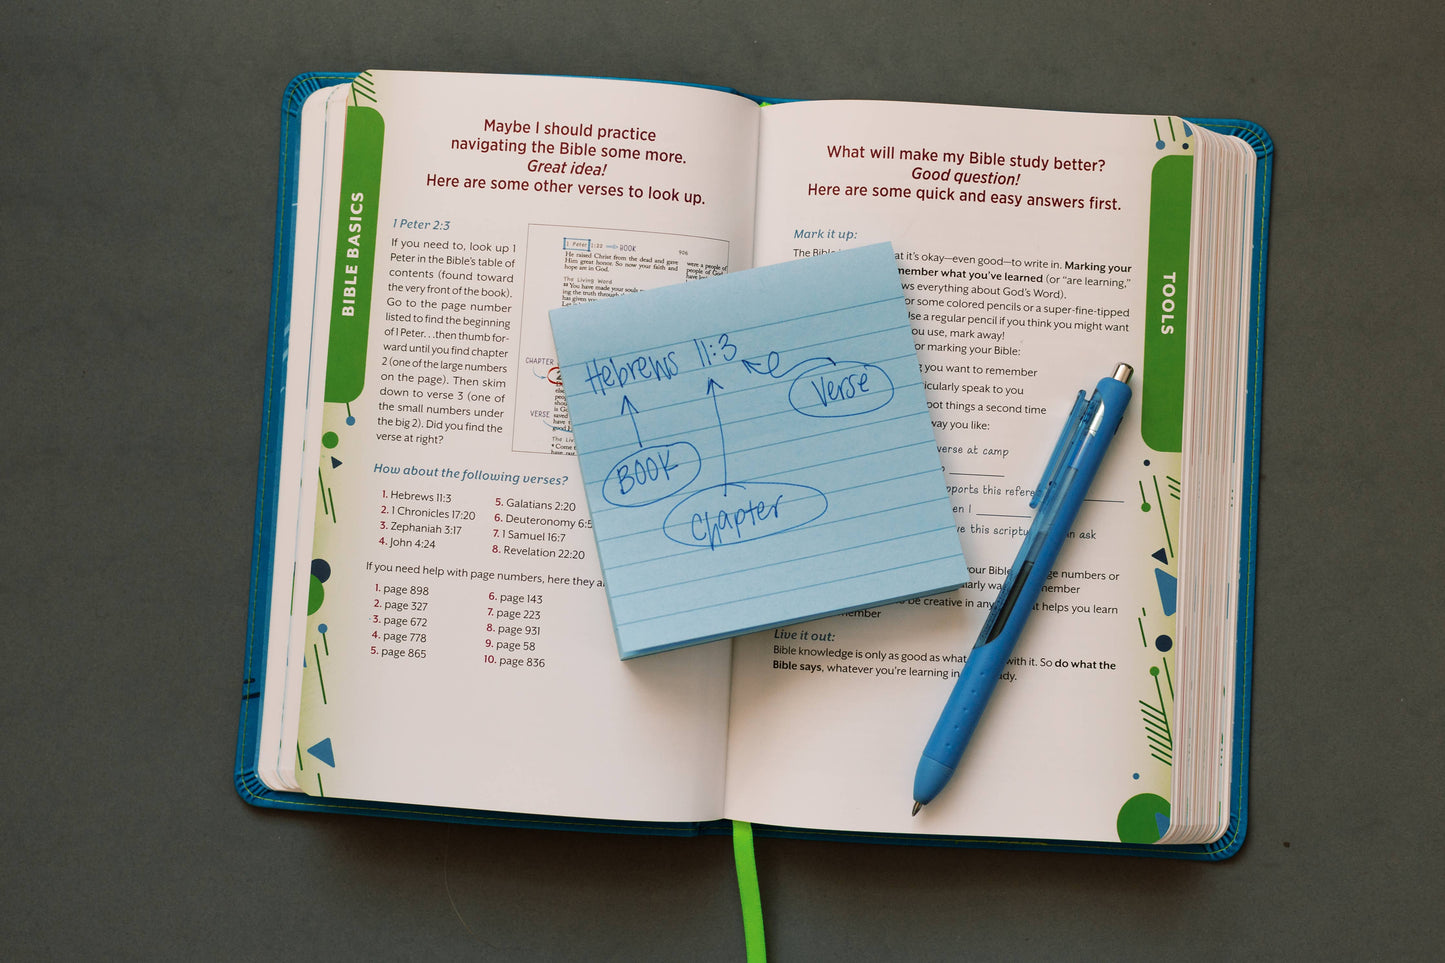 BIBLE BASICS
Maybe I should practice
navigating the Bible some more.
Great idea!
Here are some other verses to look up.
1 Peter 2:3
If you need to, look up 1
Peter in the Bible's table of
contents (found toward
the very front of the book).
Go to the page number
listed to find the beginning
of 1 Peter. . .then thumb for-
ward until you find chapter
2 (one of the large numbers
on the page). Then skim
down to verse 3 (one of
the small numbers under
the big 2). Did you find the
verse at right?
1 Peter 1:22 BOOK
906
He raised Christ from the dead and gave
Him great honor. So now your faith and
hope are in God.
The Living Word
22 You have made your souls
ing the truth through
has given you
were a people of
people of God
CHAPTER
VERSE
How about the following verses?
1. Hebrews 11:3
2. 1 Chronicles 17:20
3. Zephaniah 3:17
4. John 4:24
5. Galatians 2:20
6. Deuteronomy 6:5
7. 1 Samuel 16:7
8. Revelation 22:20
If you need help with page numbers, here they
1. page 898
2. page 327
3. page 672
4. page 778
5. page 865
6. page 143
7. page 223
8. page 931
9. page 58
10. page 836
Hebrews 11:3
BOOK
Chapter
Verse
What will make my Bible study better?
Good question!
Here are some quick and easy answers first.
Mark it up:
The at it's okay—even good—to write in. Marking your
member what you've learned (or "are learning,"
ws everything about God's Word).
or some colored pencils or a super-fine-tipped
se a regular pencil if you think you might want
ou use, mark away!
or marking your Bible:
g you want to remember
icularly speak to you
pot things a second time
way you like:
verse at camp
pports this refere
en I
ve this scriptu n ask
our Bible ge numbers or
larly wa member
be creative in any t helps you learn
member
Live it out:
Bible knowledge is only as good as what with it. So do what the
Bible says, whatever you're learning in dy.
TOOLS